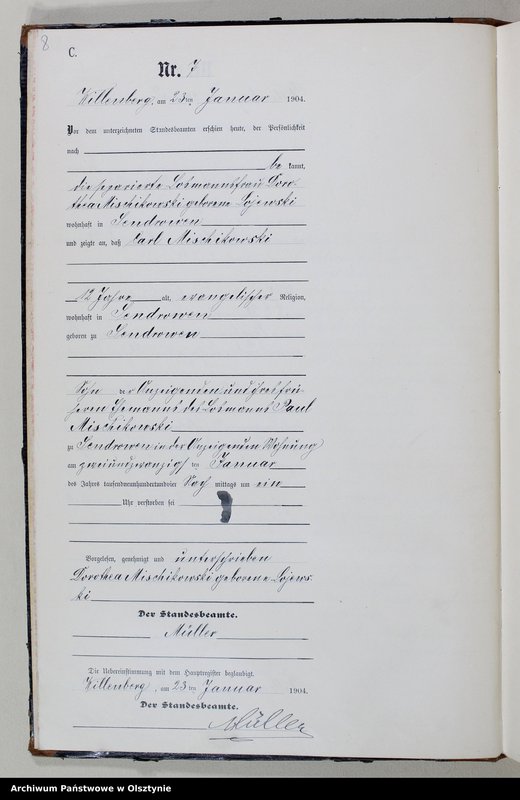 8
C.
Nr. 7
Willenberg, am 23ten Januar 1904.
Vor dem unterzeichneten Standesbeamten erschien heute, der Persönlichkeit
nach
be kannt,
die separierte Losmannsfrau Doro-
thea Mischikowski geborene Lojewski
wohnhaft in Sendrowen
und zeigte an, daß Carl Mischikowski
12 Jahre alt, evangelischer Religion,
wohnhaft in Sendrowen
geboren zu Sendrowen
Sohn der Anzeigenden und ihres frü-
heren Ehemanns des Losmanns Paul
Mischikowski
zu Sendrowen in der Anzeigenden Wohnung
am zweiundzwanzigsten Januar
des Jahres tausendneunhundertundvier Nach mittags um ein
Uhr verstorben sei
Vorgelesen, genehmigt und unterschrieben
Dorothea Mischikowski geborene Lojews-
ki
Der Standesbeamte.
Müller
Die Uebereinstimmung mit dem Hauptregister beglaubigt.
Willenberg, am 23ten Januar 1904.
Der Standesbeamte.
Müller
Archiwum Państwowe w Olsztynie